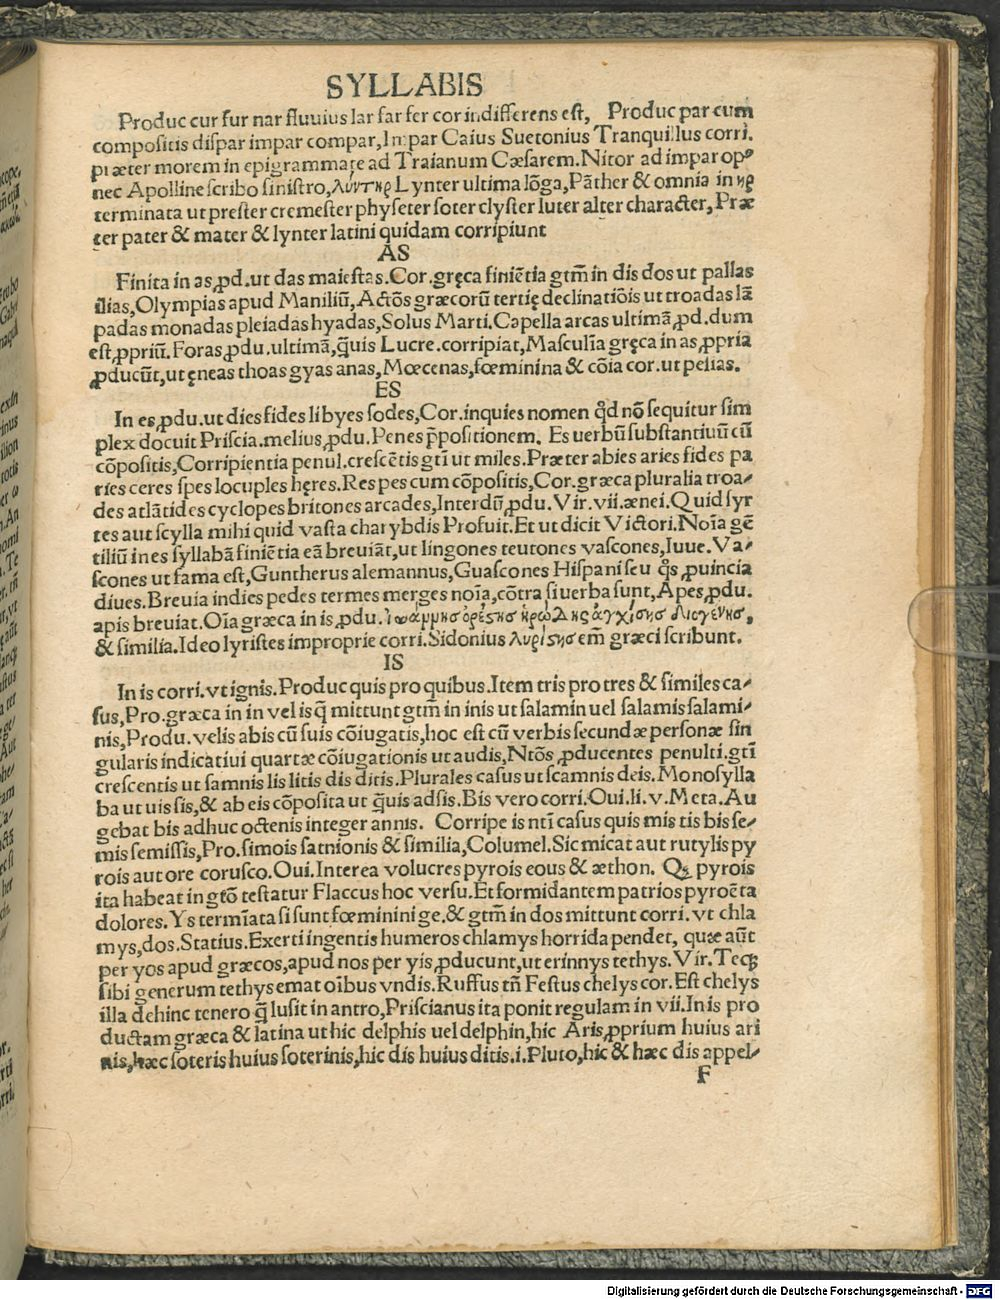 SYLLABIS
Produc cur fur nar fluuius lar far fer cor indifferens est, Produc par cum
compositis dispar impar compar,Impar Caius Suetonius Tranquillus corri.
præter morem in epigrammate ad Traianum Cæsarem.Nitor ad impar opꝰ
nec Apolline scribo sinistro,λύντηρ Lynter ultima lõga,Pãther & omnia in ηρ
terminata ut prester cremester physeter soter clyster luter alter character,Præ
ter pater & mater & lynter latini quidam corripiunt
AS
Finita in as,ꝓd.ut das maiestas.Cor.gręca finiẽtia gtm̃ in dis dos ut pallas
ilias,Olympias apud Maniliũ,Actõs græcorũ tertię declinatiõis ut troadas lã
padas monadas pleiadas hyadas,Solus Marti.Capella arcas ultimã,ꝓd.dum
est,ꝓpriũ.Foras,ꝓdu.ultimã,q̃uis Lucre.corripiat,Masculĩa gręca in as,ꝓpria
ꝓducũt,ut ęneas thoas gyas anas,Mœcenas,fœminina & cõia cor.ut pelias.
ES
In es,ꝓdu.ut dies fides libyes sodes,Cor.inquies nomen qd̃ nõ sequitur sim
plex docuit Priscia.melius,ꝓdu.Penes p̃positionem. Es uerbũ substantiuũ cũ
cõpositis,Corripientia penul.crescẽtis gtĩ ut miles.Præter abies aries fides pa
ries ceres spes locuples hęres.Res pes cum cõpositis,Cor.græca pluralia troa⸗
des atlãtides cyclopes britones arcades,Interdũ,ꝓdu.Vir.vii.ænei.Quid syr
tes aut scylla mihi quid vasta charybdis Profuit.Et ut dicit Victori.Noĩa gẽ
tiliũ in es syllabã finiẽtia eã breuiãt,ut lingones teutones vascones,Iuue.Va⸗
scones ut fama est,Guntherus alemannus,Guascones Hispani seu q̃s ꝓuincia
diues.Breuia indies pedes termes merges noĩa,cõtra si uerba sunt,Apes,ꝓdu.
apis breuiat.Oĩa græca in is,ꝓdu.ἰωάμμησ ὀρέςησ ἡρώδης ἀγχίσησ διογένησ,
& similia.Ideo lyristes improprie corri.Sidonius λυρίςησ em̃ græci scribunt.
IS
In is corri.vt ignis.Produc quis pro quibus.Item tris pro tres & similes ca⸗
sus,Pro.græca in in vel is q̃ mittunt gtm̃ in inis ut salamin uel salamis salami⸗
nis,Produ.velis abis cũ suis cõiugatis,hoc est cũ verbis secundæ personæ sin
gularis indicatiui quartæ cõiugationis ut audis,Ntõs ꝓducentes penulti.gtĩ
crescentis ut samnis lis litis dis ditis.Plurales casus ut scamnis deis.Monosylla
ba ut uis sis,& ab eis cõposita ut q̃uis adsis.Bis vero corri.Oui.li.v.Meta.Au
gebat bis adhuc octenis integer annis. Corripe is ntĩ casus quis mis tis bis se⸗
mis semissis,Pro.simois satnionis & similia,Columel.Sic micat aut rutylis py
rois aut ore corusco.Oui.Interea volucres pyrois eous & æthon. Qꝫ pyrois
ita habeat in gtõ testatur Flaccus hoc versu.Et formidantem patrios pyroẽta
dolores.Ys termĩata si sunt fœminini ge.& gtm̃ in dos mittunt corri.vt chla
mys,dos.Statius.Exerti ingentis humeros chlamys horrida pendet, quæ aũt
per yos apud græcos,apud nos per yis,ꝓducunt,ut erinnys tethys.Vir.Teqꝫ
sibi generum tethys emat oĩbus vndis.Ruffus tñ Festus chelys cor.Est chelys
illa dehinc tenero q̃ lusit in antro,Priscianus ita ponit regulam in vii.In is pro
ductam græca & latina ut hic delphis uel delphin,hic Aris,ꝓprium huius ari
nis,hæc soteris huius soterinis,hic dis huius ditis.i.Pluto,hic & hæc dis appel⸗
F
Digitalisierung gefördert durch die Deutsche Forschungsgemeinschaft - DFG